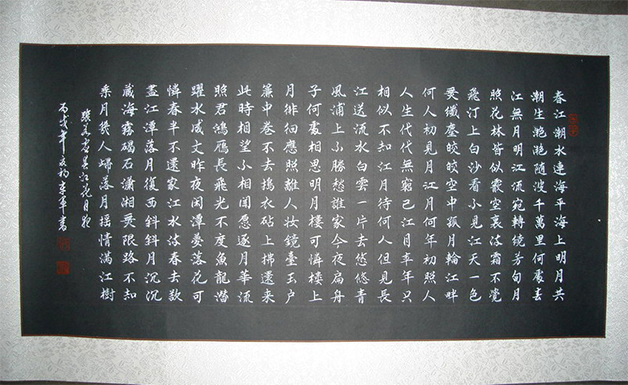 春江潮水連海平海上明月共
潮生灩灩隨波千萬里何處春
江無月明江流宛轉繞芳甸月
照花林皆似霰空裏流霜不覺
飛汀上白沙看不見江天一色
無纖塵皎皎空中孤月輪江畔
何人初見月江月何年初照人
人生代代無窮已江月年年只
相似不知江月待何人但見長
江送流水白雲一片去悠悠青
楓浦上不勝愁誰家今夜扁舟
子何處相思明月樓可憐樓上
月徘徊應照離人妝鏡臺玉戶
簾中卷不去搗衣砧上拂還來
此時相望不相聞願逐月華流
照君鴻雁長飛光不度魚龍潛
躍水成文昨夜閑潭夢落花可
憐春半不還家江水流春去欲
盡江潭落月復西斜斜月沉沉
藏海霧碣石瀟湘無限路不知
乘月幾人歸落月搖情滿江樹
張若虛春江花月夜
丙戌年